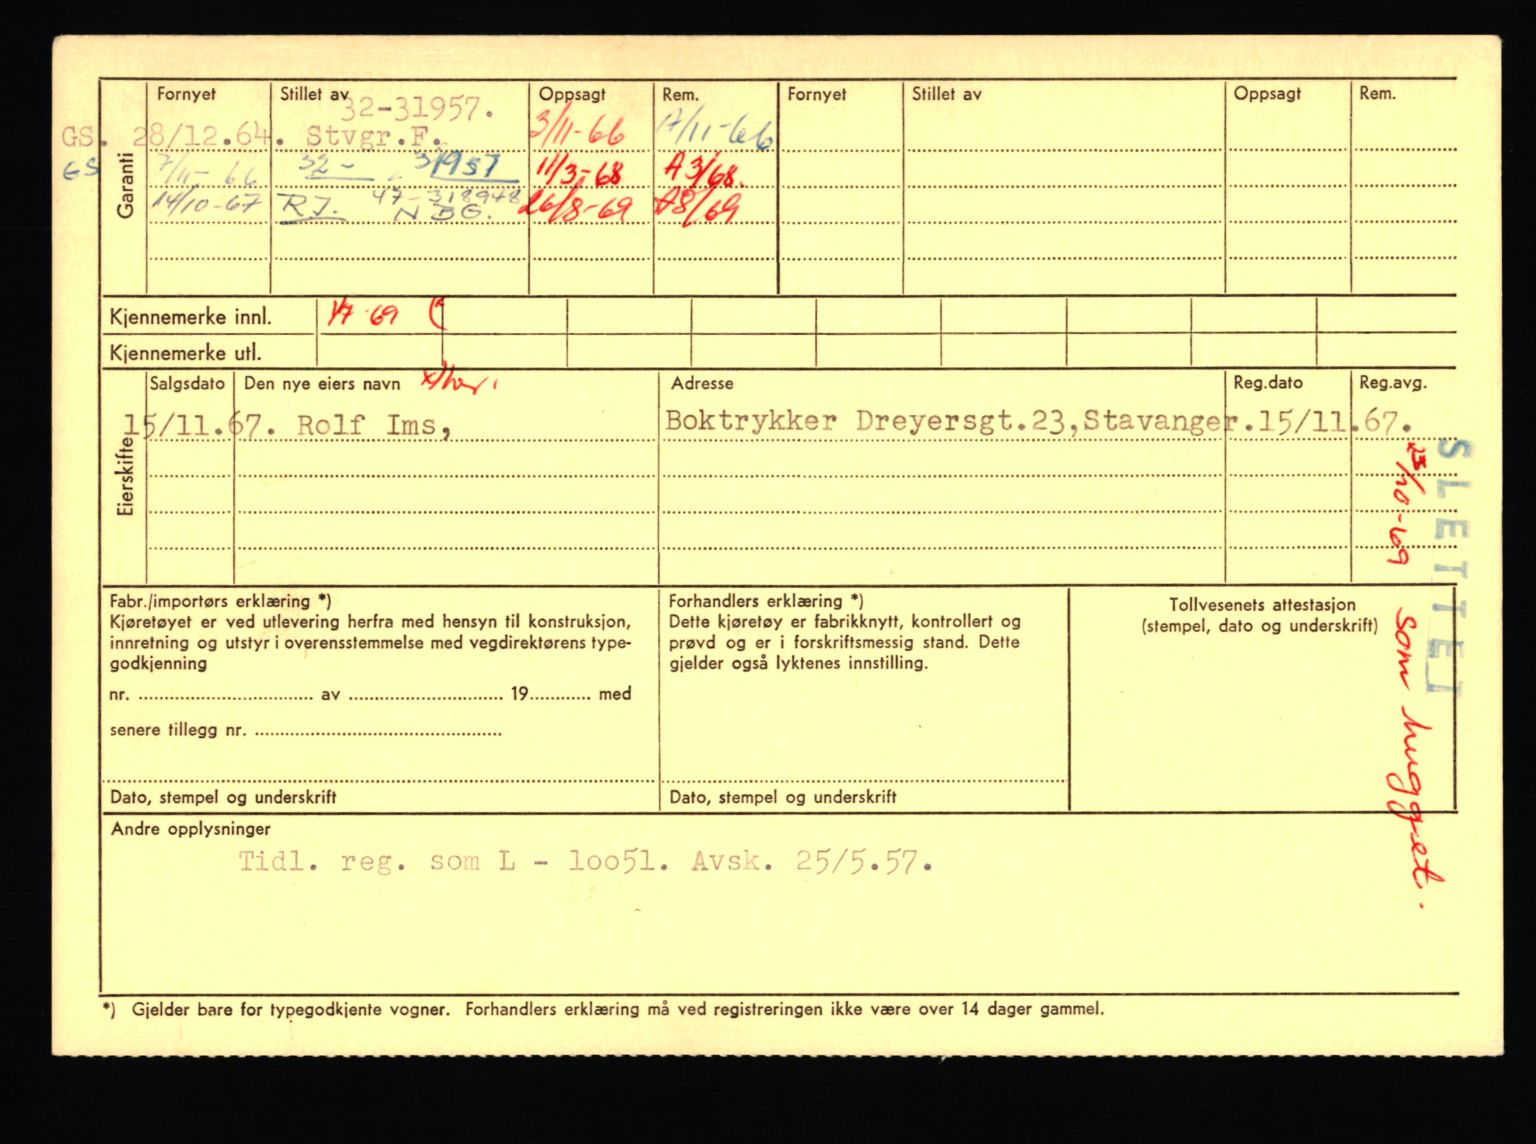 Fornyet Stillet av Oppsagt Rem. Fornyet Stillet av Oppsagt Rem.
32-31957.
GS. 28/12.64. Stvgr.F. 3/11-66 17/11-66
GS 7/11-66 32- 31957 11/3-68 A3/68.
14/10-67 R.J. 47-318948 26/8-69 A8/69
N B G.
Garanti
Kjennemerke innl. 1/7-69
Kjennemerke utl.
Salgsdato Den nye eiers navn Adresse Reg.dato Reg.avg.
15/11.67. Rolf Ims, Boktrykker Dreyersgt.23,Stavanger.15/11.67.
Eierskifte
SLETTET
23/10-69 som hugget.
Fabr./importørs erklæring *)
Kjøretøyet er ved utlevering herfra med hensyn til konstruksjon,
innretning og utstyr i overensstemmelse med vegdirektørens type-
godkjenning
nr. av 19 med
senere tillegg nr.
Dato, stempel og underskrift
Forhandlers erklæring *)
Dette kjøretøy er fabrikknytt, kontrollert og
prøvd og er i forskriftsmessig stand. Dette
gjelder også lyktenes innstilling.
Dato, stempel og underskrift
Tollvesenets attestasjon
(stempel, dato og underskrift)
Andre opplysninger
Tidl. reg. som L - 10051. Avsk. 25/5.57.
*) Gjelder bare for typegodkjente vogner. Forhandlers erklæring må ved registreringen ikke være over 14 dager gammel.